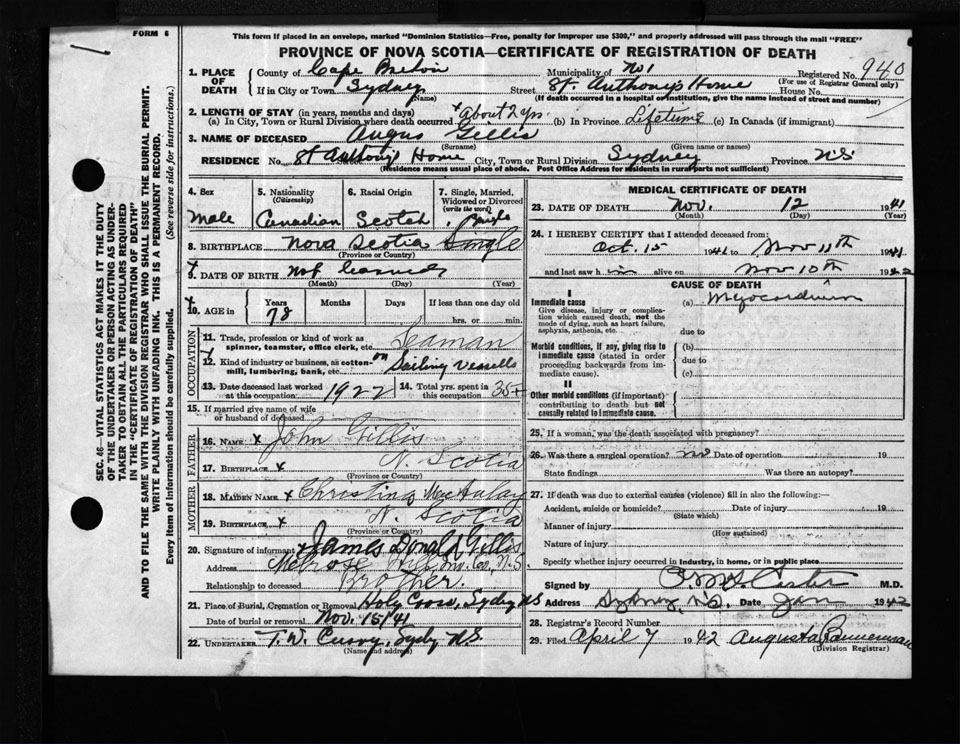 FORM 6
This form if placed in an envelope, marked "Dominion Statistics—Free, penalty for improper use $300," and properly addressed will pass through the mail "FREE"
PROVINCE OF NOVA SCOTIA—CERTIFICATE OF REGISTRATION OF DEATH
1. PLACE OF DEATH
County of Cape Breton Municipality of No 1 Registered No. 940
(For use of Registrar General only)
If in City or Town Sydney Street St. Anthony's Home House No.
(Name) (If death occurred in a hospital or institution, give the name instead of street and number)
2. LENGTH OF STAY (in years, months and days)
(a) In City, Town or Rural Division where death occurred x about 2 yrs. (b) In Province Lifetime (c) In Canada (if immigrant)
3. NAME OF DECEASED Angus Gillis
(Surname) (Given name or names)
RESIDENCE No. St Anthony's Home City, Town or Rural Division Sydney Province NS
(Residence means usual place of abode. Post Office Address for residents in rural parts not sufficient)
SEC. 46—VITAL STATISTICS ACT MAKES IT THE DUTY
OF THE UNDERTAKER OR PERSON ACTING AS UNDER-
TAKER TO OBTAIN ALL THE PARTICULARS REQUIRED
IN THE "CERTIFICATE OF REGISTRATION OF DEATH"
AND TO FILE THE SAME WITH THE DIVISION REGISTRAR WHO SHALL ISSUE THE BURIAL PERMIT.
WRITE PLAINLY WITH UNFADING INK. THIS IS A PERMANENT RECORD.
Every item of Information should be carefully supplied. (See reverse side for instructions.)
4. Sex Male
5. Nationality (Citizenship) Canadian
6. Racial Origin Scotch
7. Single, Married, Widowed or Divorced (write the word) Single
8. BIRTHPLACE Nova Scotia Single
(Province or Country)
9. DATE OF BIRTH Not learned
(Month) (Day) (Year)
10. AGE in Years 78 Months Days If less than one day old hrs. or min.
OCCUPATION
11. Trade, profession or kind of work as spinner, teamster, office clerk, etc. Seaman
12. Kind of industry or business, as cotton-mill, lumbering, bank, etc. on Sailing vessells
13. Date deceased last worked at this occupation 1922
14. Total yrs. spent in this occupation 35+
15. If married give name of wife or husband of deceased
FATHER
16. NAME x John Gillis
17. BIRTHPLACE x N. Scotia
(Province or Country)
MOTHER
18. MAIDEN NAME x Christina MacAulay
19. BIRTHPLACE x N. Scotia
(Province or Country)
20. Signature of informant x James Donald Gillis
Address Melrose Hill Ins. Co. N.S.
Relationship to deceased Brother.
21. Place of Burial, Cremation or Removal Holy Cross, Sydny NS
Date of burial or removal Nov. 15/41
22. UNDERTAKER T. W. Curry, Sydny N.S.
(Name and address)
MEDICAL CERTIFICATE OF DEATH
23. DATE OF DEATH Nov. 12 1941
(Month) (Day) (Year)
24. I HEREBY CERTIFY that I attended deceased from:
Oct. 15 1941 to Nov 11th 1941
and last saw him alive on Nov 10th 194
CAUSE OF DEATH
I
Immediate cause (a) Myocardium
Give disease, injury or complication which caused death, not the mode of dying, such as heart failure, asphyxia, asthenia, etc.
due to
Morbid conditions, if any, giving rise to immediate cause (stated in order proceeding backwards from immediate cause).
(b)
due to
(c)
II
Other morbid conditions (if important) contributing to death but not causally related to immediate cause.
25. If a woman, was the death associated with pregnancy?
26. Was there a surgical operation? no Date of operation 19
State findings Was there an autopsy?
27. If death was due to external causes (violence) fill in also the following:—
Accident, suicide or homicide? Date of injury 19
(State which)
Manner of injury
(How sustained)
Nature of injury
Specify whether injury occurred in Industry, in home, or in public place
Signed by M.D.
Address Sydney N.S. Date Jan 1942
28. Registrar's Record Number
29. Filed April 7 1942 Augusta Bannerman
(Division Registrar)